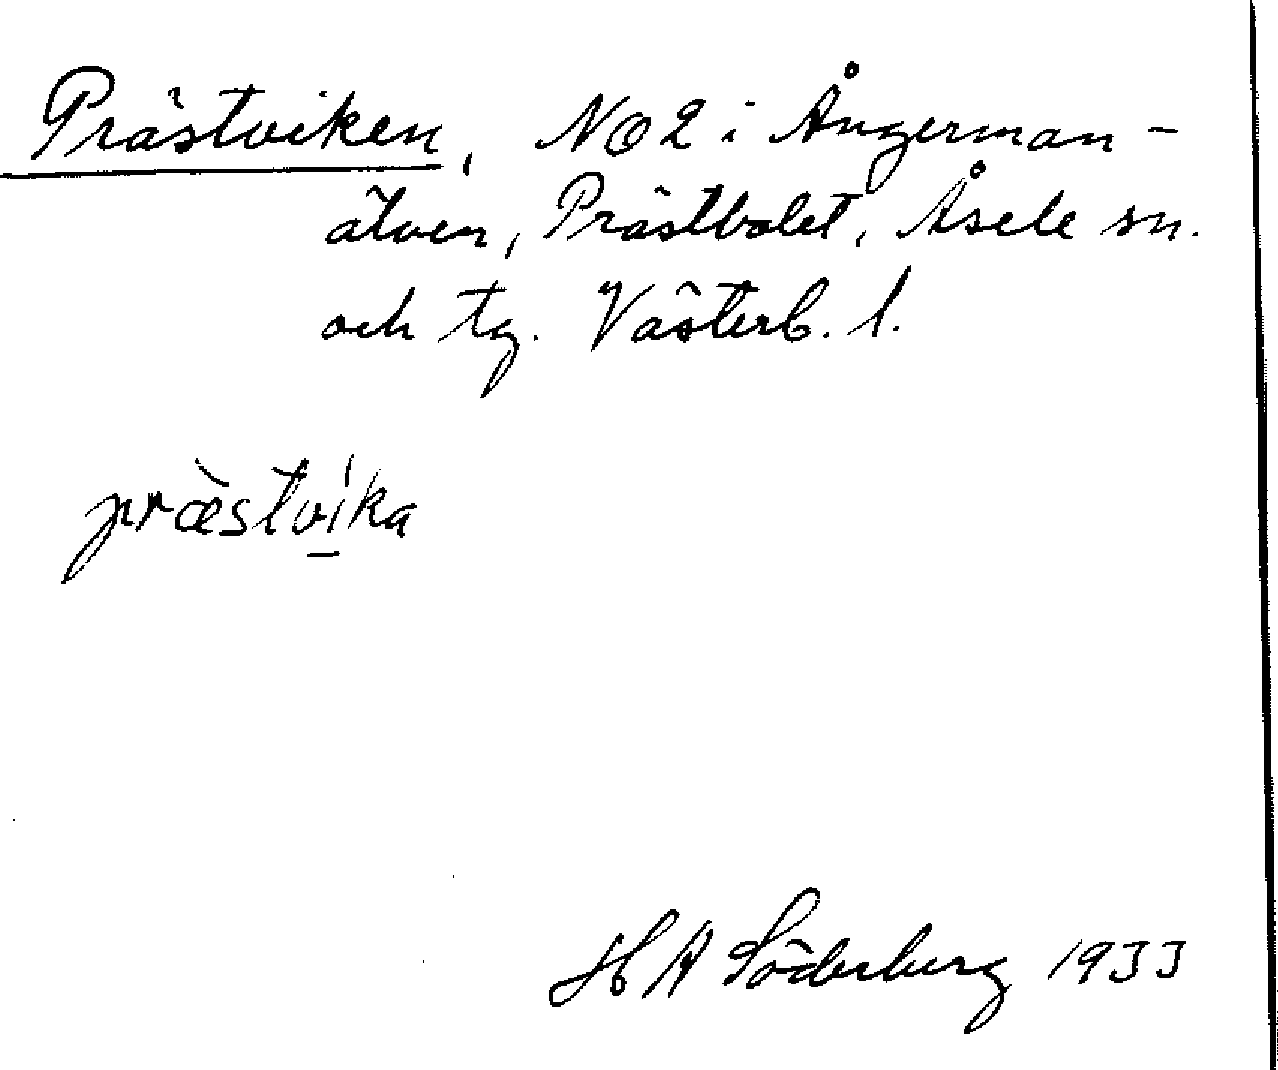 Prästviken, NO2 i Ångerman-
älven, Prästbolet, Åsele sn.
och tg. Västerb. l.
præ̀ství̱ka
H A Söderberg 1933